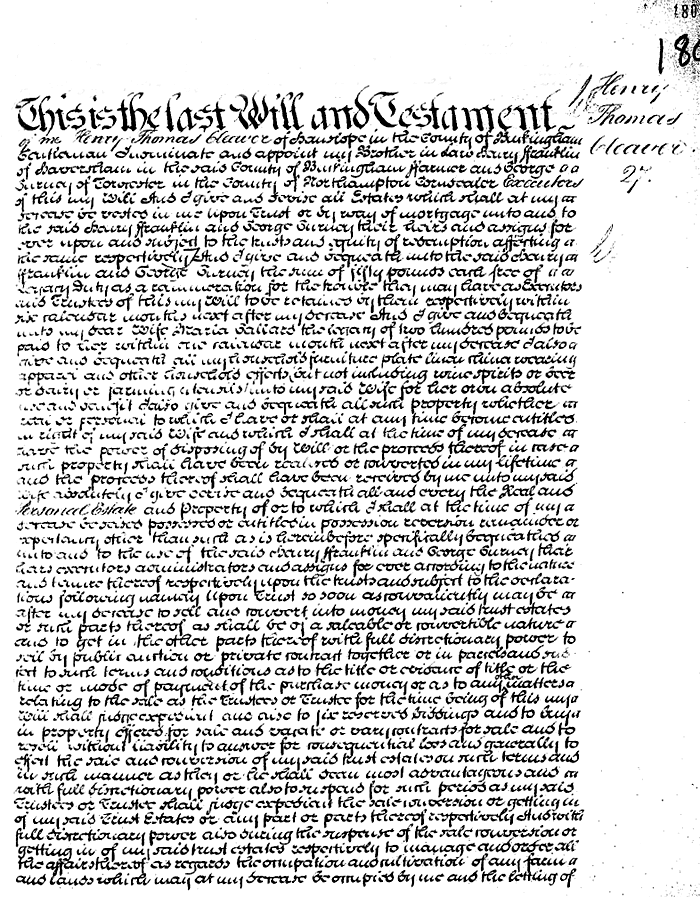 180
180
Henry
Thomas
Cleaver
27.
This is the last Will and Testament
of me Henry Thomas Cleaver of Hanslope in the County of Buckingham
Gentleman I nominate and appoint my Brother in Law Henry Franklin
of Haversham in the said County of Buckingham Farmer and George
Gurney of Towcester in the County of Northampton Corndealer Executors
of this my Will And I give and devise all Estates which shall at my
decease be vested in me upon Trust or by way of mortgage unto and to
the said Henry Franklin and George Gurney their heirs and assigns for
ever upon and subject to the trusts and equity of redemption affecting
the same respectively And I give and bequeath unto the said Henry
Franklin and George Gurney the sum of fifty pounds each free of
legacy duty as a remuneration for the trouble they may have as Executors
and Trustees of this my Will to be retained by them respectively within
six calendar months next after my decease And I give and bequeath
unto my dear Wife Maria the legacy of two hundred pounds to be
paid to her within one calendar month next after my decease I also
give and bequeath all my household furniture plate linen china wearing
apparel and other household effects but not including wine spirits or beer
or dairy or farming utensils unto my said Wife for her own absolute
use and benefit I also give and bequeath all such property whether
real or personal to which I have or shall at any time become entitled
in right of my said Wife and which I shall at the time of my decease
have the power of disposing of by Will or the proceeds thereof in case
such property shall have been realised or converted in my lifetime
and the proceeds thereof shall have been received by me unto my said
Wife absolutely I give devise and bequeath all and every the Real and
Personal Estate and property of or to which I shall at the time of my
decease be seised possessed or entitled in possession reversion remainder or
expectancy other than such as is hereinbefore specifically bequeathed
unto and to the use of the said Henry Franklin and George Gurney their
heirs executors administrators and assigns for ever according to the nature
and tenure thereof respectively upon the trusts and subject to the declara-
tions following namely Upon Trust so soon as conveniently may be
after my decease to sell and convert into money my said trust estates
or such parts thereof as shall be of a saleable or convertible nature
and to get in the other parts thereof with full discretionary power to
sell by public auction or private contract together or in parcels and sub-
ject to such terms and conditions as to the title or evidence of title or the
time or mode of payment of the purchase money or as to any other matters
relating to the sale as the Trustees or Trustee for the time being of this my
Will shall judge expedient and also to fix reserved biddings and to buy in
property offered for sale and vacate or vary contracts for sale and to
resell without liability to answer for consequential loss and generally to
effect the sale and conversion of my said trust estates on such terms and
in such manner as they or he shall deem most advantageous and
with full discretionary power also to suspend for such period as my said
Trustees or Trustee shall judge expedient the sale conversion or getting in
of my said Trust Estates or any part or parts thereof respectively And with
full discretionary power also during the suspense of the sale conversion or
getting in of my said trust estates respectively to manage and order all
the affairs thereof as regards the occupation and cultivation of any farm
and lands which may at my decease be occupied by me and the letting of